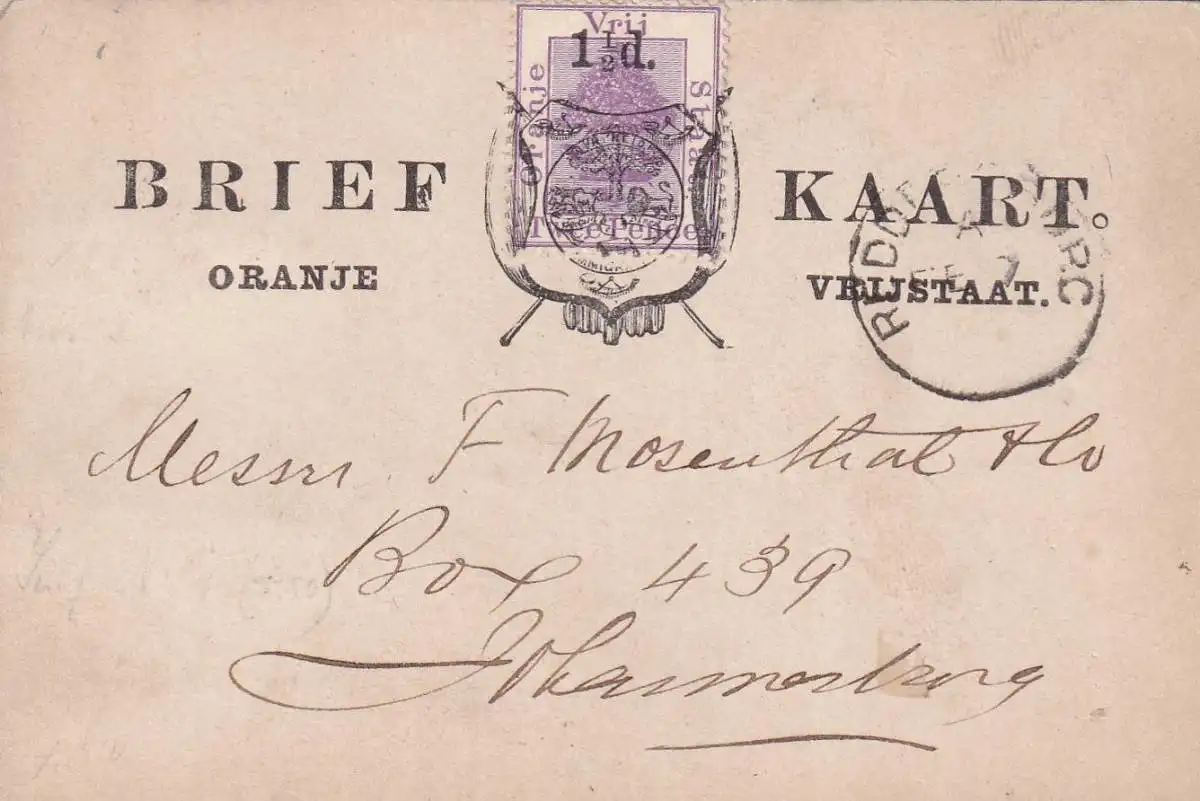 Vrij
1½d.
Oranje
Staat
Twee Pence
BRIEF KAART.
ORANJE VRIJSTAAT.
Messrs F Mosenthal & Co
Box 439
Johannesburg